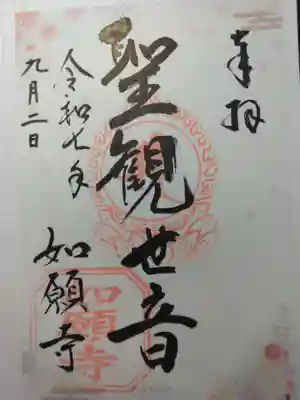 奉拝
聖観世音
如願寺
令和七年
九月二日
如願寺